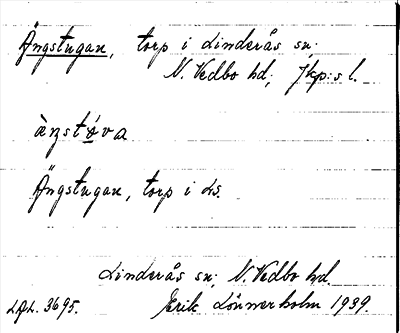 Ängstugan, torp i Linderås sn;
N. Vedbo hd; Jkp:s l.
ànstúva
Ängstugan, torp i Ls.
Linderås sn; N. Vedbo hd.
LAL. 3695. Erik Lönnerholm 1939.